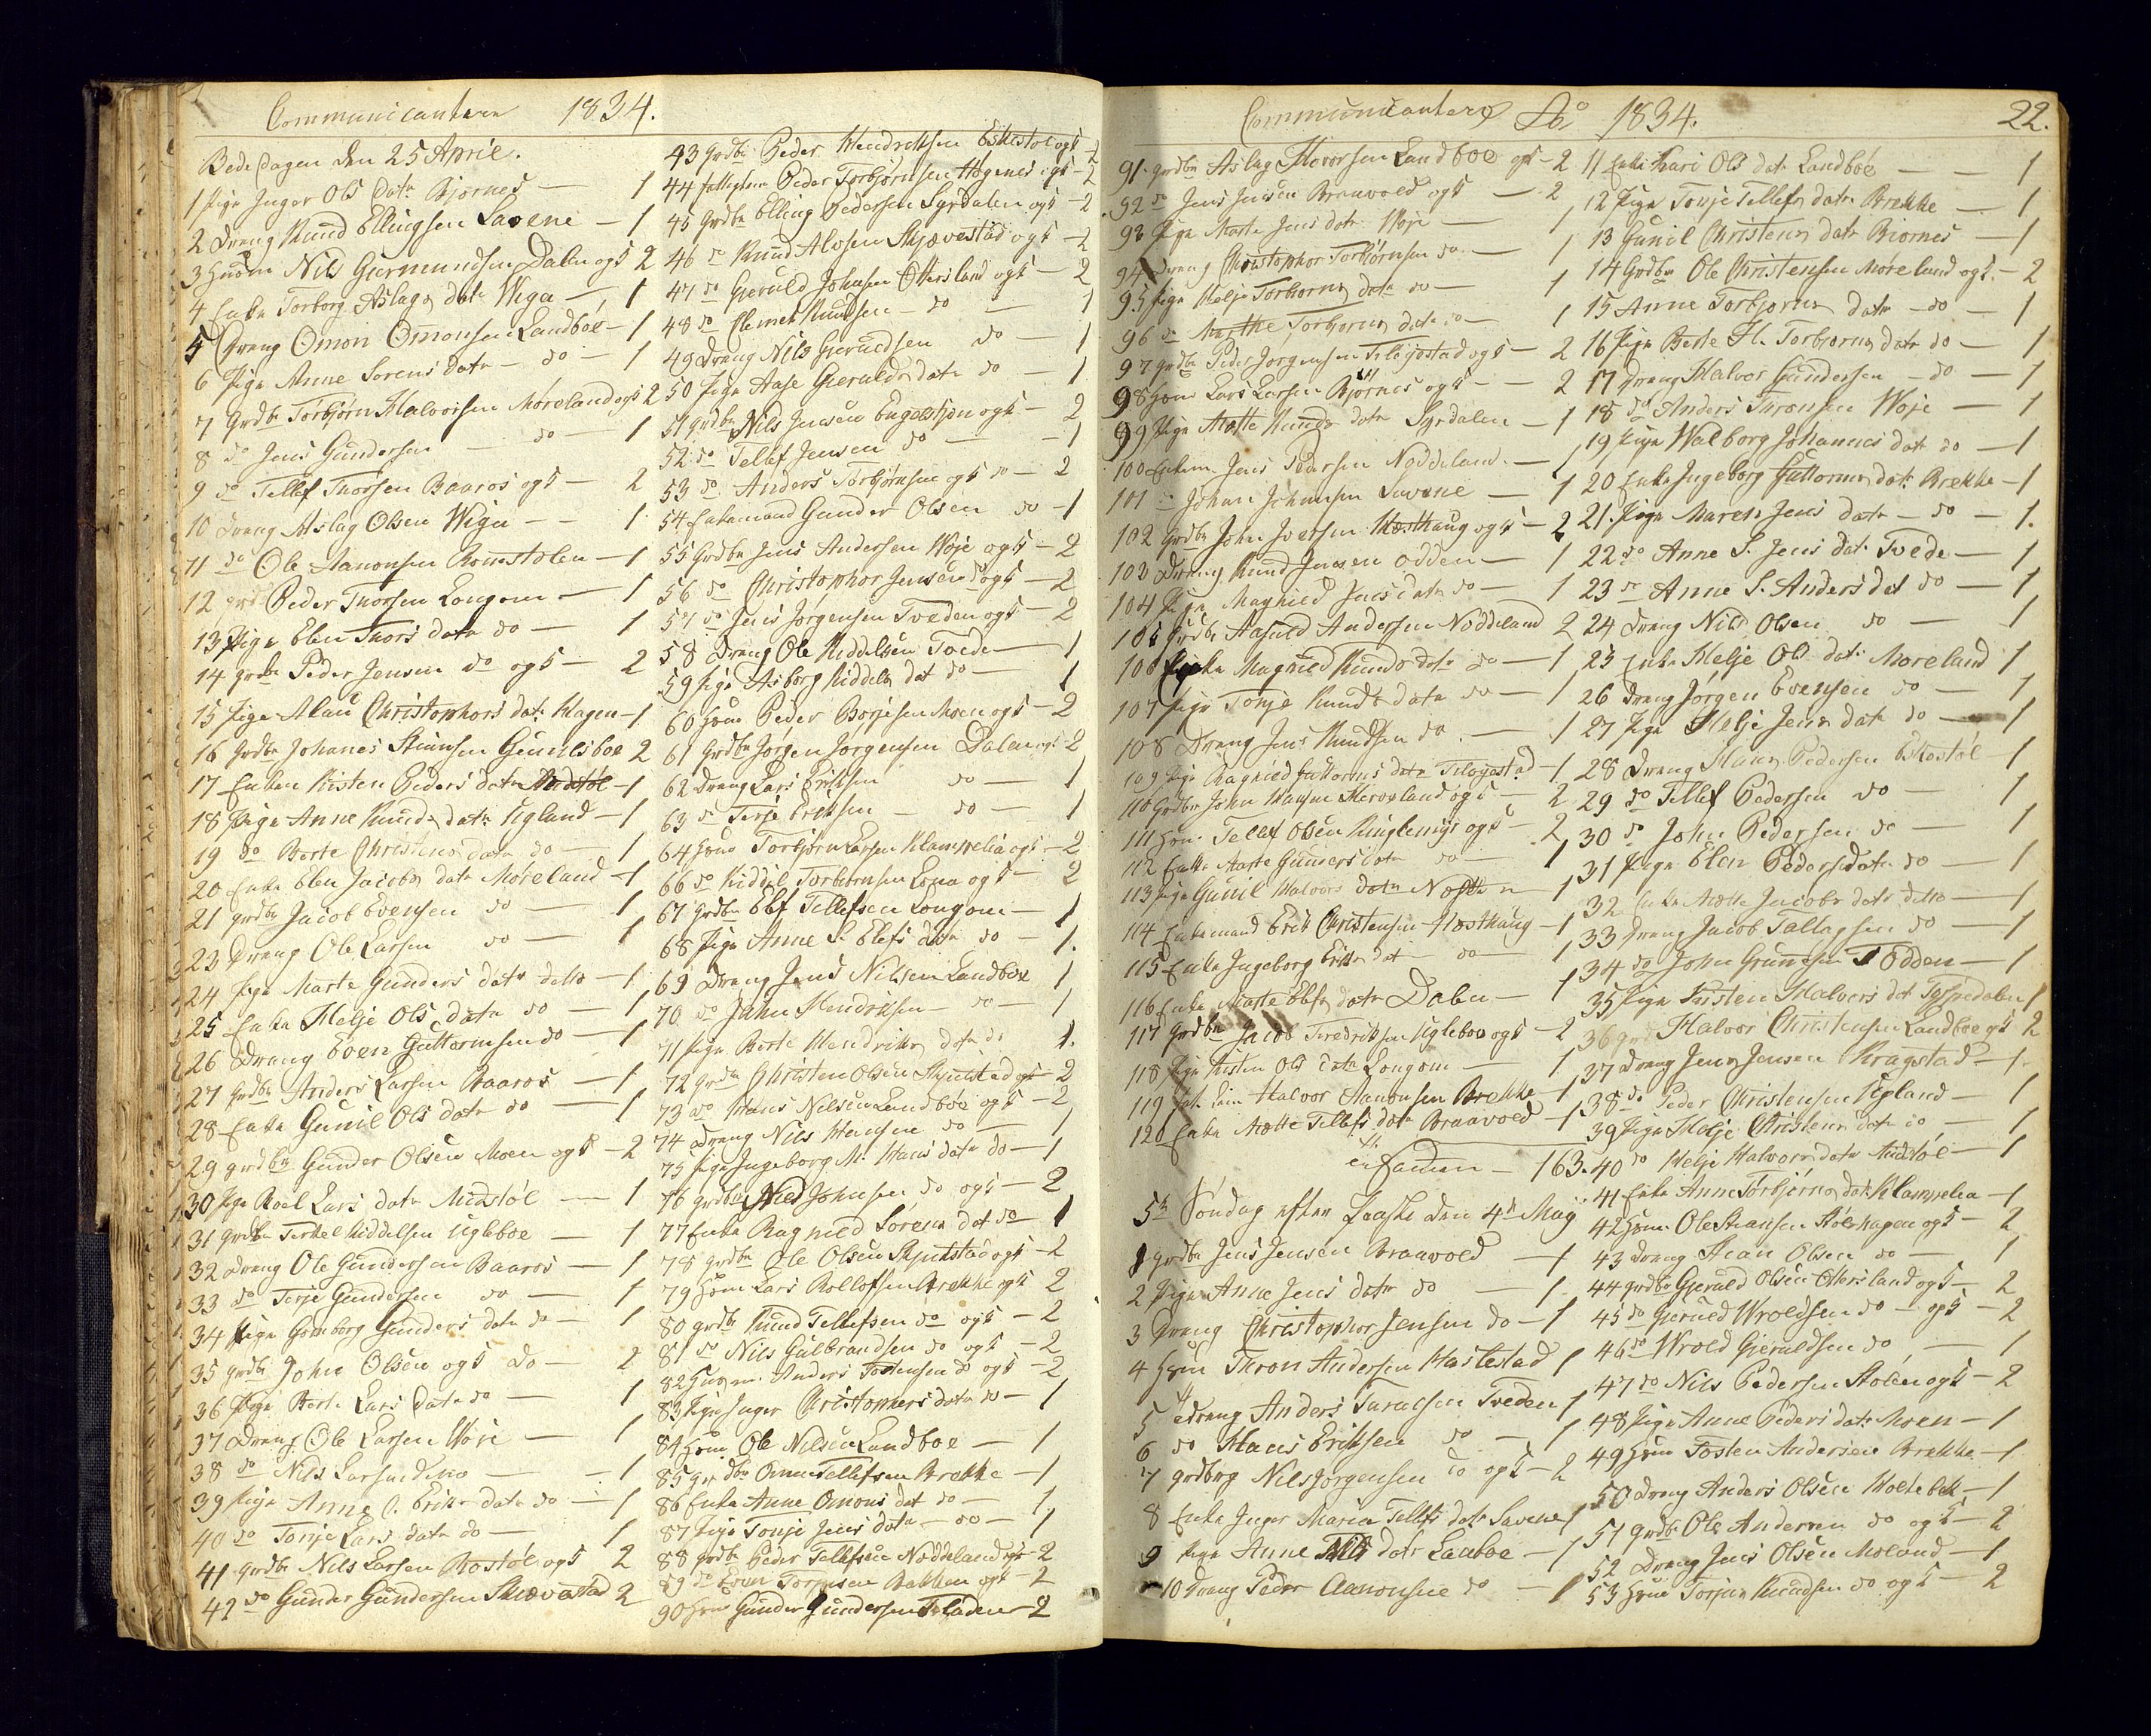 Communicantere 1834.
Bededagen den 25 April.
1 Pige Inger Ols Datr Bjornes — 1
2 Dreng Knud Ellingsen Lavene — 1
3 Huusm Nils Gurmundsen Dalen og K 2
4 Enke Torborg Aslags datr Wiga — 1
5 Dreng Omon Omonsen Landboe — 1
6 Pige Anne Sorens datr do — 1
7 Grdbr Torbjørn Halvorsen Møreland og K 2
8 do Jens Gundersen do — 1
9 do Tellef Thorsen Baaros og K — 2
10 Dreng Aslag Olsen Wiga — 1
11 do Ole Aanonsen — 1
12 Peder Thorsen Longom — 1
13 Pige Elen Thors datr do — 1
14 grdbr Peder Jensen do og K — 2
15 Pige Christophers datr Hagen — 1
16 Grdbr Johanes 2
17 Enken Kisten Peders datr — 1
18 Pige Anne Knuds datr Ugland — 1
19 do Berte Christens datr do — 1
20 Enke Elen Jacobs datr Møreland — 1
21 grdbr Jacob Evensen do — 1
23 Dreng Ole Larsen do — 1
24 Pige Marte Gunders datr ditto — 1
25 Enke Helje Ols datr do — 1
26 Dreng Even Guttormsen do — 1
27 Grdbr Anders Larsen Baaros — 1
28 Enke Gunil Ols datr do — 1
29 grdbr Gunder Olsen Moen og K — 2
30 Pige Roel Lars datr Midstøl — 1
31 grdbr Terkel Kiddelsen Ugleboe — 1
32 Dreng Ole Gundersen Baaros — 1
33 do Terje Gundersen do — 1
34 Pige Gomborg Gunders datr do — 1
35 grdbr John Olsen og K do — 2
36 Pige Berte Lars Datr do — 1
37 Dreng Ole Larsen Woje — 1
38 do Nils Larsen ditto — 1
39 Pige Anne Eriks datr do — 1
40 do Tonje Lars datr do — 1
41 grdbr Nils Larsen Rostøl og K 2
42 do Gunder Gundersen Skiævestad 2
43 Grdbr Peder Hendriksen Eskestøl og K — 2
44 Peder Torbjørnsen Høgenes og K — 2
45 Grdbr Elling Pedersen Syrdalen og K — 2
46 do Knud Alvsen Skjævestad og K — 2
47 do Gjeruld Johnsen Ottersland og K — 2
48 do Clemet Knudsen — do — 1
49 Dreng Nils Gjeruldsen do — 1
50 Pige Aase Gjerulds datr do — 1
51 grdbr Nils Jensen og K — 2
52 do Tellef Jensen do — 1
53 do Anders Torbjørnsen og K do — 2
54 Enkemand Gunder Olsen do — 1
55 Grdbr Jens Andersen Woje og K — 2
56 do Christopher Jensen do og K — 2
57 do Jens Jørgensen Tveden og K — 2
58 Dreng Ole Kiddelsen Tvede — 1
59 Pige Asborg Kiddels dat do — 1
60 Huus Peder Børjesen Moen og K — 2
61 Grdbr Jørgen Jørgensen Dalen og K — 2
62 Dreng Lars Eriksen do — 1
63 do Terje Eriksen — do — 1
64 Huus Torbjørn Larsen Klampelia og K — 2
66 do Kiddel Torbiornsen og K — 2
67 Grdbr Elef Tellefsen Longom — 1
68 Pige Anne S. Elefs datr do — 1.
69 Dreng Jens Nilsen Landboe 1
70 do John Hendriksen — do — 1
71 Pige Berte Hendriks datr do 1.
72 grdbr Christen Olsen og K — 2
73 do Hans Nilsen Landboe og K — 2
74 Dreng Nils Hansen do — 1
75 Pige Ingeborg M. Hans datr do — 1
76 grdbr Nils Johnsen do og K — 2
77 Enke Ragnild Sørens dat do — 1
78 grdbr Ole Olsen og K — 2
79 Huus Lars Rollofsen Brekke og K 2
80 grdbr Knud Tellefsen do og K — 2
81 do Nils Gulbrandsen do og K — 2
82 Huusm. Anders Tostensen do og K — 2
83 Pige Inger Christophers datr do — 1
84 Huus Ole Nilsen Landboe — 1
85 Grdbr Omun Tellefsen Brekke — 1
86 Enke Anne Omons dat do — 1.
87 Pige Tonje Jens datr — do — 1
88 grdbr Peder Tellefsen Noddeland og K — 2
89 do Even Torjusen Bakken og K — 2
90 Huus Gunder Gundersen — 2
Communicantere Ao 1834. 22.
91. grdbr Aslag Halvorsen Landboe og K — 2
92 do Jens Jensen Braavold og K — 2
93 Pige Marte Jens datr Woje — 1
94 Dreng Christopher Torbiørnsen do — 1
95 Pige Helje Torbiorns datr do — 1
96 do Torbiorns datr do — 1
97 grdbr Peder Jorgensen Teløgstad og K — 2
98 Huus Lars Larsen Bjørnes og K — 2
99 Pige Mette Knuds datr Syrdalen — 1
100 Enkem. Jens Pedersen Noddeland — 1
101 do Johan Johansen Lavene — 1
102 Grdbr John Iversen Hæsthaug og K — 2
103 Dreng Knud Jensen Odden — 1
104 Pige Magnild Jens datr do — 1
105 Grdbr Aasuld Andersen Noddeland 2
106 Enke Magnild Knuds datr do — 1
107 Pige Tonje Knuds datr do — 1
108 Dreng Jens Knudsen do — 1
109 Pige Ragnild Guttorms datr Teløgstad — 1
110 Grdbr John og K — 2
111 Huus Tellef Olsen Ringlemyr og K — 2
112 Enke Marte Gunders datr do — 1
113 Pige Gunil Halvors datr — 1
114 Enkemand Erik Christensen Hæsthaug — 1
115 Enke Ingeborg Eriks dat do — 1
116 Enke Marte Elefs datr Dalen — 1
117 Grdbr Jacob Fredriksen Ugleboe og K — 2
118 Pige Kisten Ols datr Longom — 1
119 Halvor Aanonsen Brekke — 1
120 Enke Mette Tellefs datr Braavold — 1
163.
5te Søndag efter Paaske den 4de May
1 grdbr Jens Jensen Braavold — 1
2 Pige Anne Jens datr do — 1
3 Dreng Christopher Jensen do — 1
4 Huus Thron Andersen Hastestad 1
5 Dreng Anders Taraldsen Tveden 1
6 do Hans Eriksen do — 1
7 grdbrug Nils Jørgensen do og K — 2
8 Enke Inger Marie Tellefs datr Lavene 1
9 Pige Anne Nils datr Laaboe — 1
10 Dreng Peder Aanonsen do — 1
11 Enke Kari Ols datr Landboe — 1
12 Pige Tonje Tellefs datr Brekke — 1
13 Gunil Christens datr Biornes — 1
14 Grdbr Ole Christensen Møreland og K — 2
15 Anne Torbjorns datr do — 1
16 Pige Berte H. Torbiorns datr do — 1
17 Dreng Halvor Gundersen — do — 1
18 do Anders Thronsen Woje — 1
19 Pige Walborg Johannes datr do — 1
20 Enke Ingeborg Guttorms datr Brekke — 1
21. Pige Maren Jens datr — do — 1.
22 do Anne S. Jens datr Tvede — 1
23 do Anne S. Anders dat do — 1
24 Dreng Nils Olsen do — 1
25 Enke Helje Ols datr Moreland 1
26 Dreng Jørgen Evensen do — 1
27 Pige Helje Jens datr do — 1
28 Dreng Hans Pedersen Eskestøl — 1
29 do Tellef Pedersen do — 1
30 do John Pedersen do — 1
31 Pige Elen Peders datr do — 1
32 Enke Mette Jacobs datr ditto — 1
33 Dreng Jacob Tallagsen do — 1
34 do John Odden — 1
35 Pige Kisten Halvors dat 1
36 grdbr Halvor Christensen Landboe og K 2
37 Dreng Jens Jensen Kragstad — 1.
38 do Peder Christensen Ugland — 1
39 Pige Helje Christens datr do — 1
40 do Helje Halvors datr Midstøl — 1
41 Enke Anne Torbjørns datr Klampelia — 1
42 Huus Ole Steansen Stølshagen og K — 2
43 Dreng Stean Olsen do — 1
44 grdbr Gjeruld Olsen Ottersland og K — 2
45 do Gjeruld Wroldsen do og K — 2
46 do Wrold Gjeruldsen do — 1
47 do Nils Pedersen Stølen og K — 2
48 Pige Anne Peders datr Moen — 1
49 Huus Tosten Andersen Brekke — 1
50 Dreng Anders Olsen Holtebek — 1
51 grdbr Ole Andersen do og K — 2
52 Dreng Jens Olsen Moland — 1
53 Huus Torjus Knudsen do og K — 2